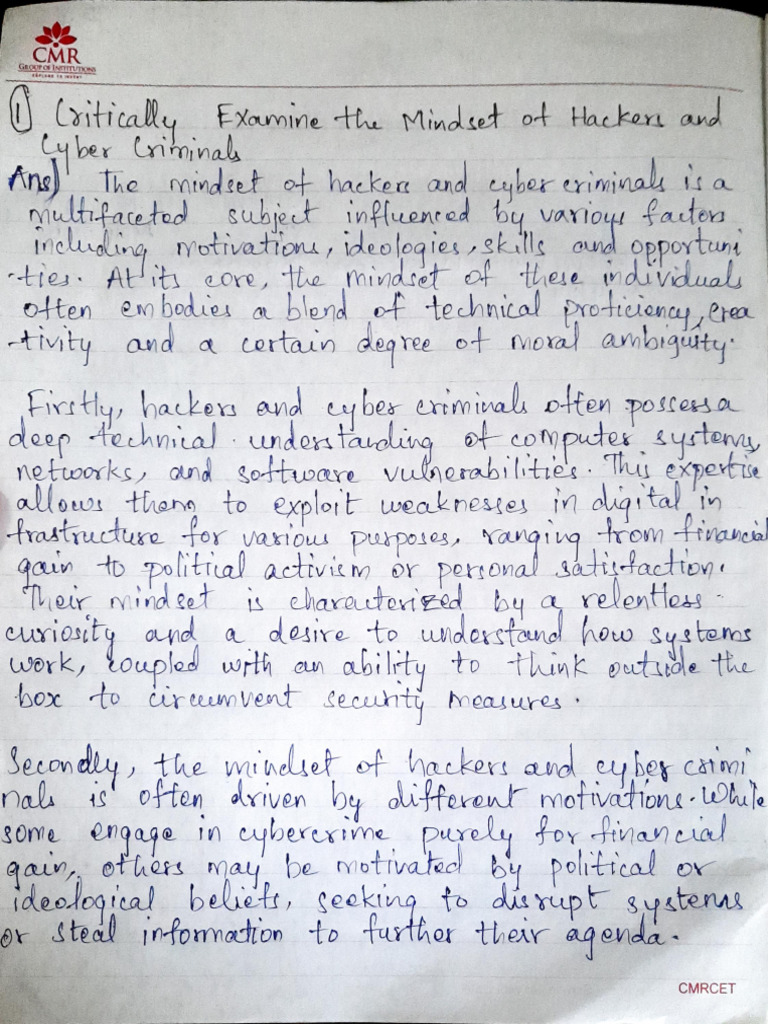 CMR
GROUP OF INSTITUTIONS
EXPLORE TO INVENT
① Critically Examine the Mindset of Hackers and
Cyber Criminals
Ans) The mindset of hackers and cyber criminals is a
multifaceted subject influenced by various factors
including motivations, ideologies, skills and opportuni
-ties. At its core, the mindset of these individuals
often embodies a blend of technical proficiency, crea
-tivity and a certain degree of moral ambiguity.
Firstly, hackers and cyber criminals often possess a
deep technical understanding of computer systems,
networks, and software vulnerabilities. This expertise
allows them to exploit weaknesses in digital in
frastructure for various purposes, ranging from financial
gain to political activism or personal satisfaction.
Their mindset is characterized by a relentless
curiosity and a desire to understand how systems
work, coupled with an ability to think outside the
box to circumvent security measures.
Secondly, the mindset of hackers and cyber crimi
nals is often driven by different motivations. While
some engage in cybercrime purely for financial
gain, others may be motivated by political or
ideological beliefs, seeking to disrupt systems
or steal information to further their agenda.
CMRCET